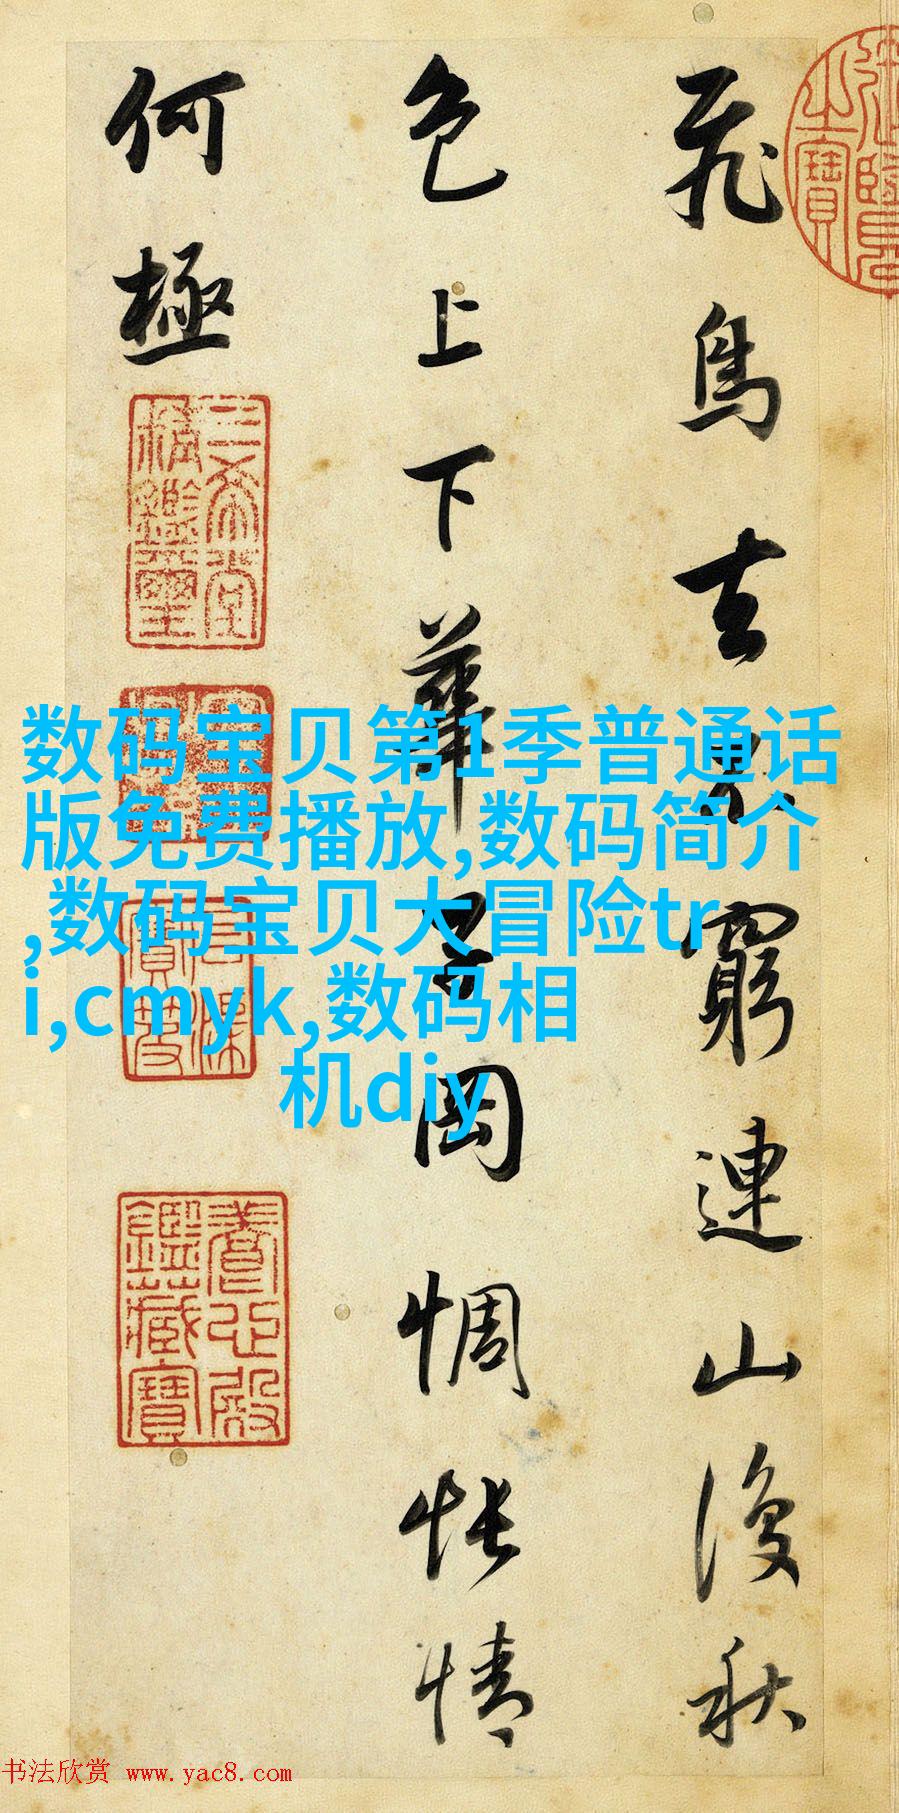 飛鳥去不窮連山復秋
色上下華子岡惆悵情
何極
三希堂精鑑璽
養心殿鑑藏寶
数码宝贝第1季普通话
版免费播放,数码简介
,数码宝贝大冒险tr
i,cmyk,数码相
机diy
书法欣赏 www.yac8.com